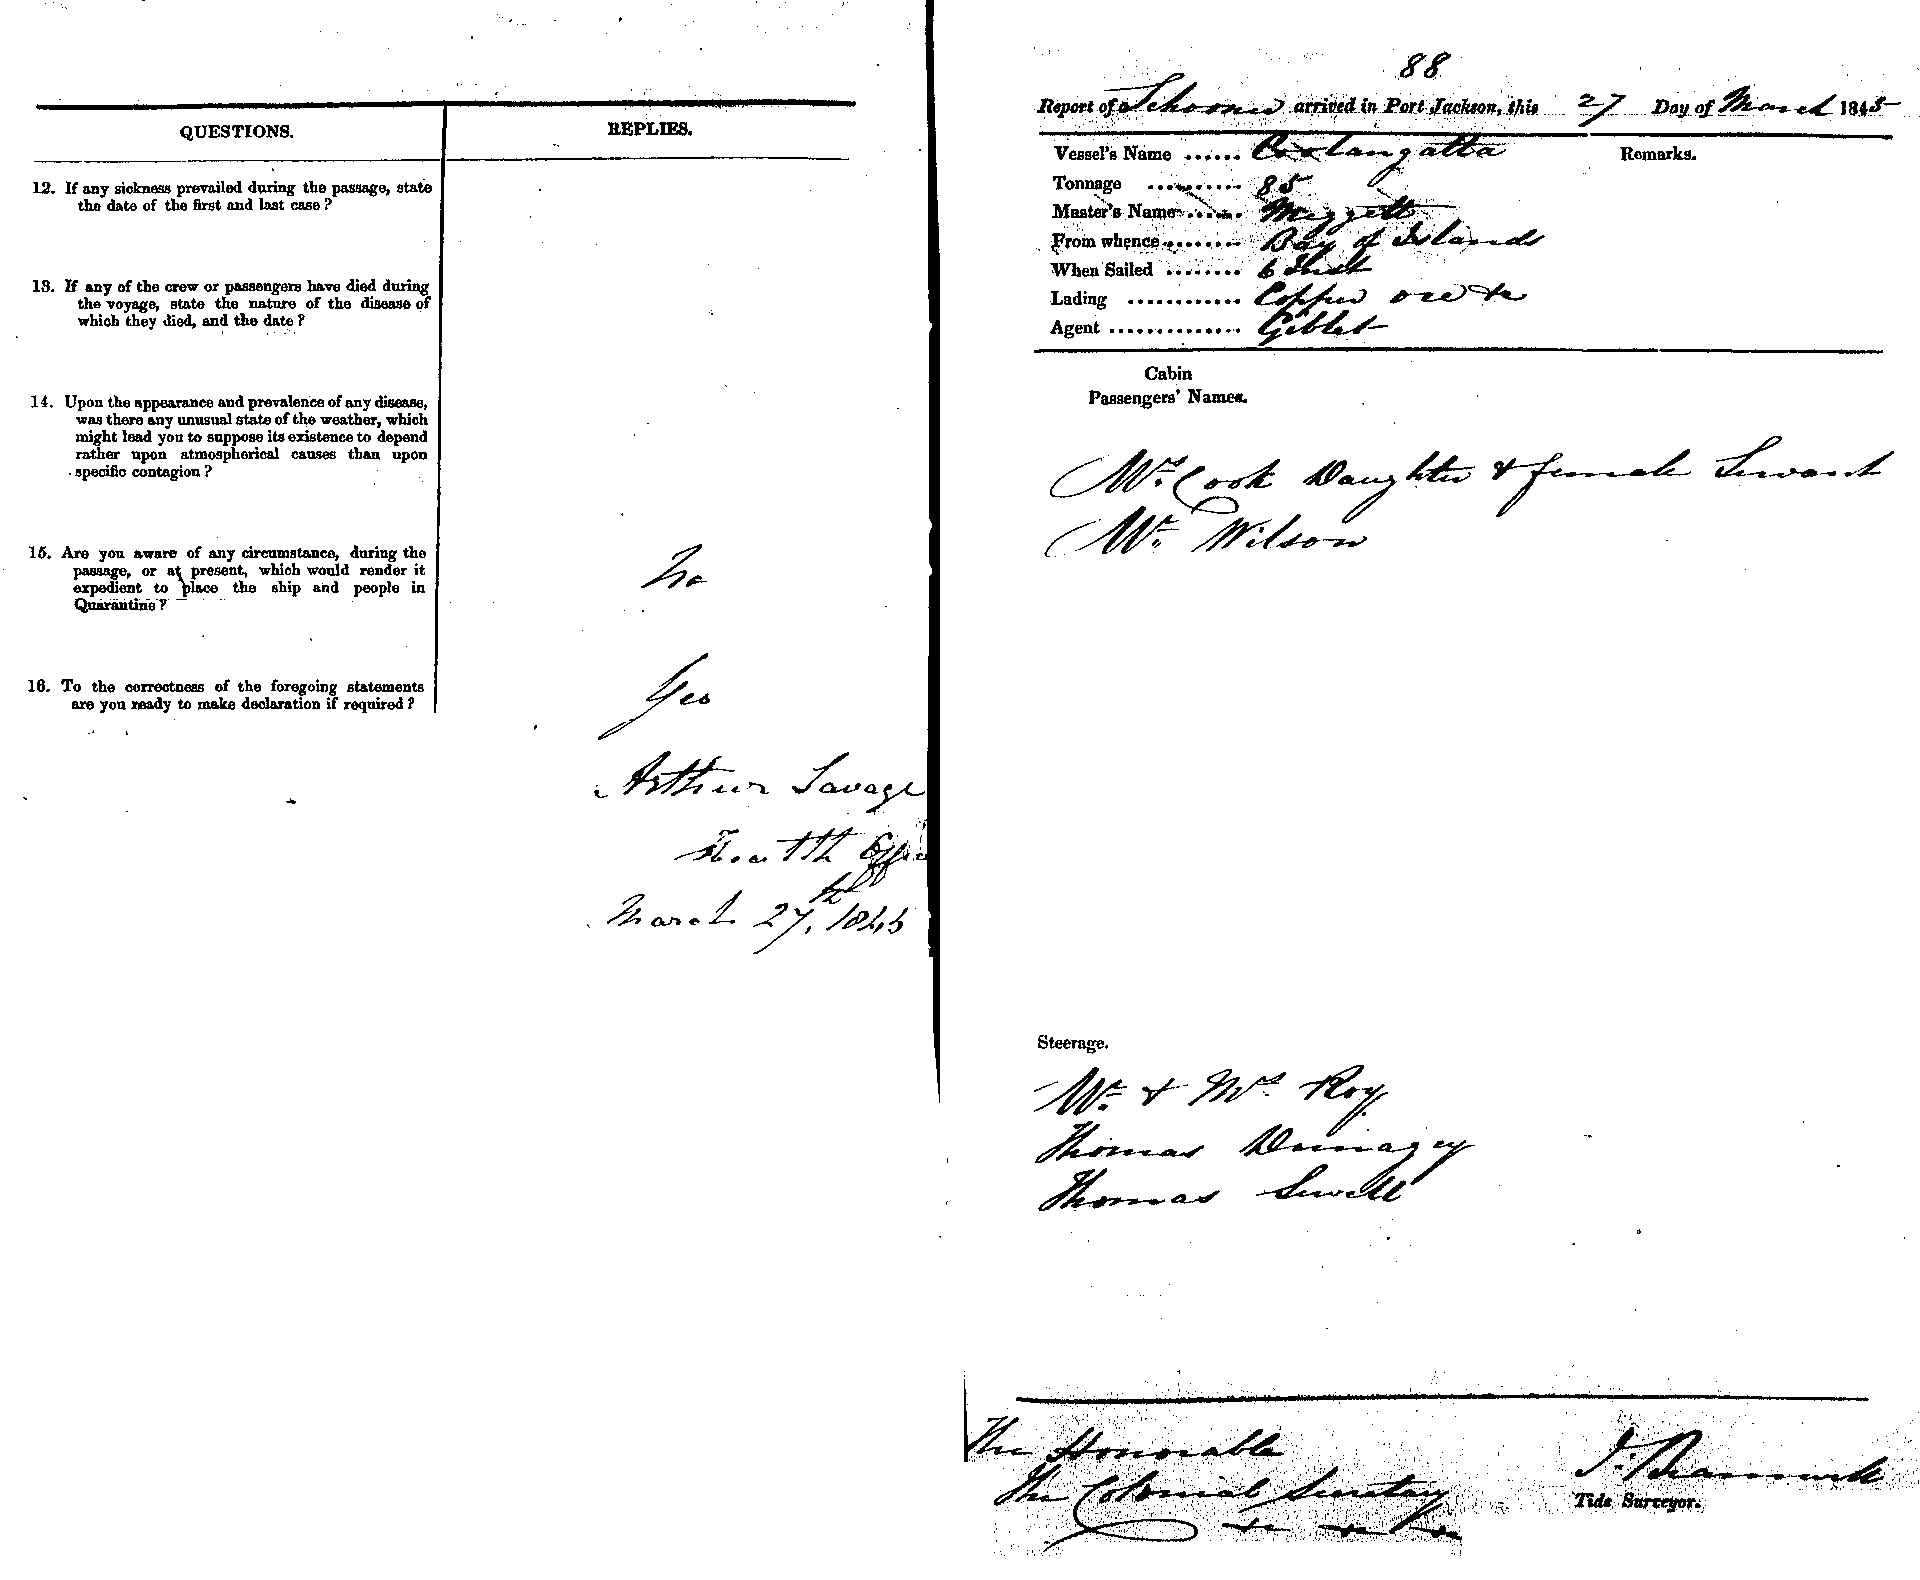 QUESTIONS.
REPLIES.
12. If any sickness prevailed during the passage, state
the date of the first and last case ?
13. If any of the crew or passengers have died during
the voyage, state the nature of the disease of
which they died, and the date ?
14. Upon the appearance and prevalence of any disease,
was there any unusual state of the weather, which
might lead you to suppose its existence to depend
rather upon atmospherical causes than upon
specific contagion ?
15. Are you aware of any circumstance, during the
passage, or at present, which would render it
expedient to place the ship and people in
Quarantine ?
No
16. To the correctness of the foregoing statements
are you ready to make declaration if required ?
Yes
Arthur Savage
Health Offic
March 27th, 1845
88
Report of Schooner arrived in Port Jackson, this 27 Day of March 1845
Vessel's Name ...... Coolangatta
Remarks.
Tonnage .......... 85
Master's Name ...... Meggett
From whence ........ Bay of Islands
When Sailed ........ 6 Inst
Lading ............ Copper ore &c
Agent .............. Giblet
Cabin
Passengers' Names.
Mrs. Cook Daughter & female Servant
Mr. Wilson
Steerage.
Mr. & Mrs. Roy
Thomas
Thomas Sewell
The Honorable
The Colonial Secretary
&c &c &c
Tide Surveyor.